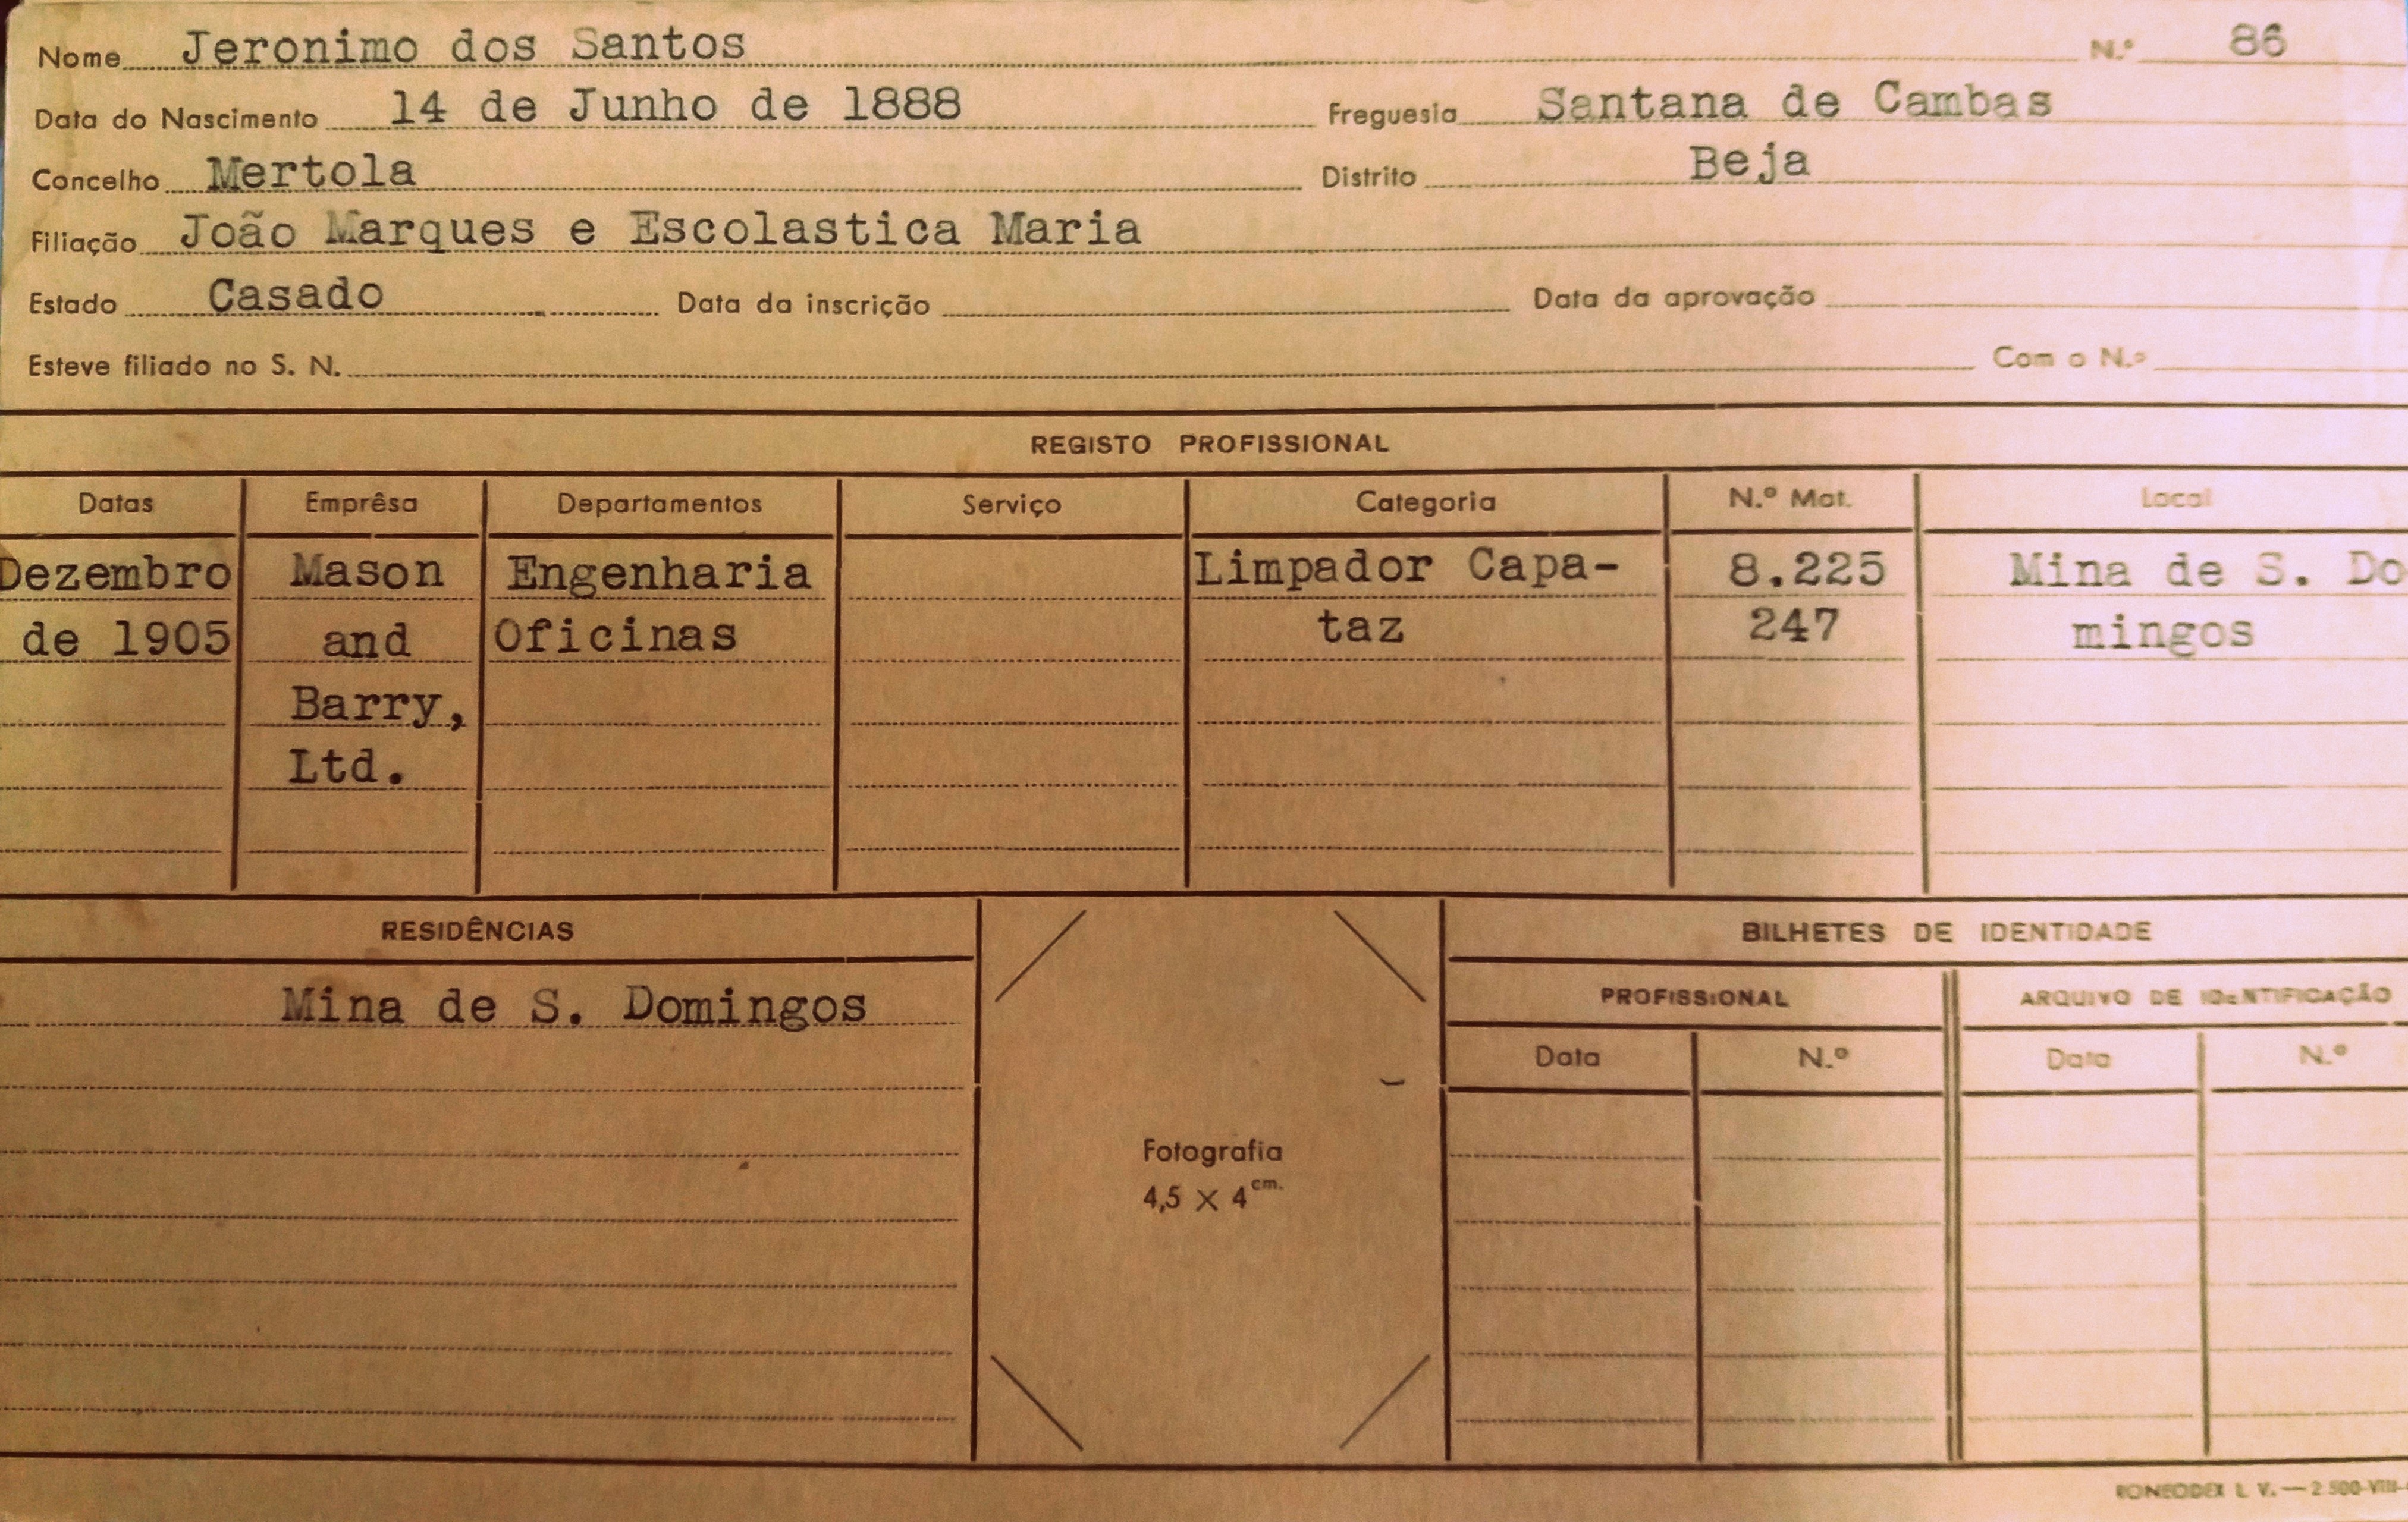 Nome Jeronimo dos Santos N.º 86
Data do Nascimento 14 de Junho de 1888 Freguesia Santana de Cambas
Concelho Mertola Distrito Beja
Filiação João Marques e Escolastica Maria
Estado Casado Data da inscrição Data da aprovação
Esteve filiado no S. N. Com o N.º
REGISTO PROFISSIONAL
Datas Emprêsa Departamentos Serviço Categoria N.º Mat. Local
Dezembro Mason Engenharia Limpador Capa- 8.225 Mina de S. Do
de 1905 and Oficinas taz 247 mingos
Barry,
Ltd.
RESIDÊNCIAS BILHETES DE IDENTIDADE
Mina de S. Domingos PROFISSIONAL ARQUIVO DE IDENTIFICAÇÃO
Data N.º Data N.º
Fotografia
4,5 × 4 cm.
RONEODEX L. V. — 2 500-VIII-